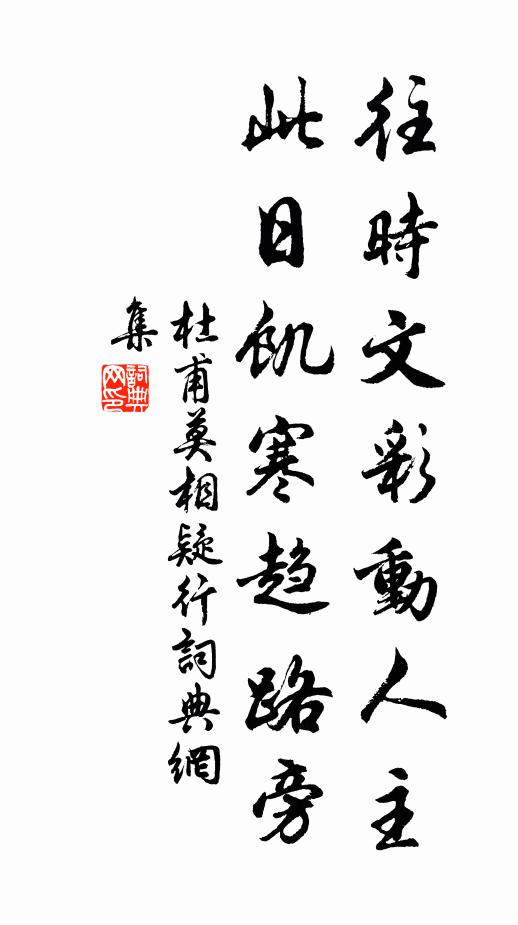 往時文彩動人主
此日飢寒趋路旁
杜甫莫相疑行詞典網
集
詞典
网印